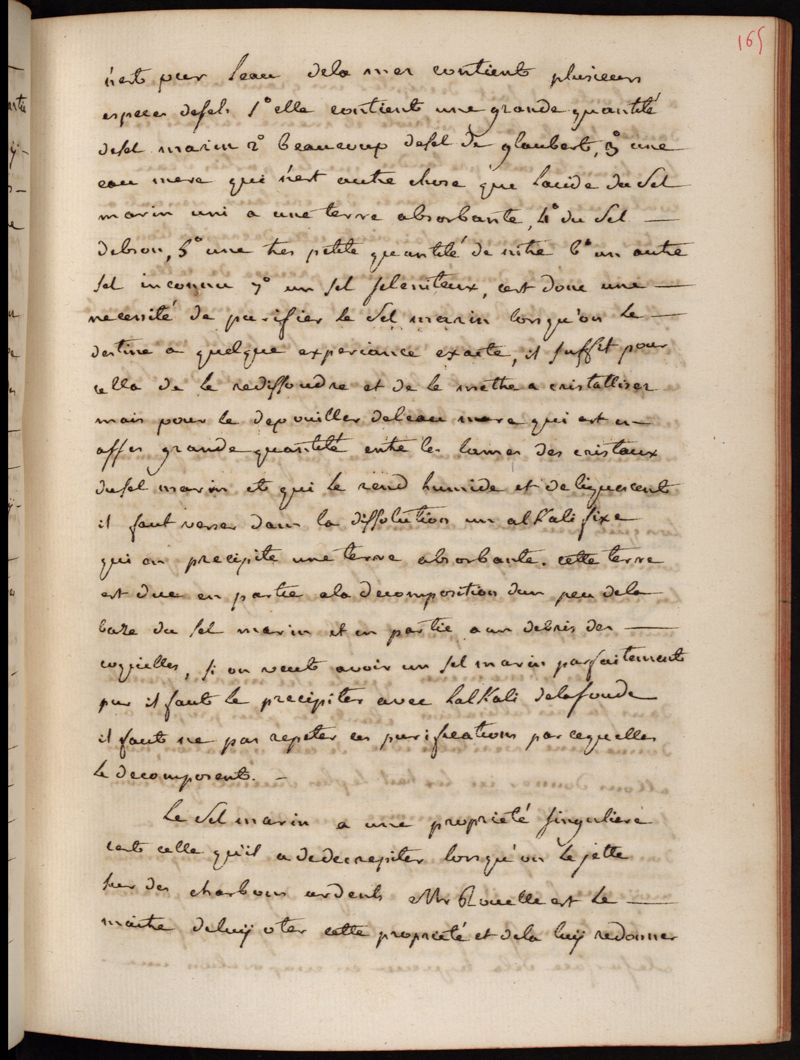 165
n'est pur leau dela mer contient plusieurs
especes desels 1° elle contient une grande quantité
desel marin 2° beaucoup desel de glaubert, 3° une
eau mere qui n'est autre chose que lacide du Sel
marin uni a une terre absorbante, 4° du Sel
debson, 5° une tres petite quantité de nitre 6° un autre
sel inconnu 7° un sel seleniteux, cest donc une
necessité de purifier le Sel marin lorsqu'on le
destine a quelque experiance exacte, il suffit pour
cella de le redissoudre et de le mettre a cristalliser
mais pour le depouiller deleau mere qui est en
asses grande quantité entre les lames des cristaux
dusel marin et qui le rend humide et deliquescent
il faut verser dans la dissolution un alkali fixe
qui en precipite une terre absorbante. cette terre
est due en partie ala decomposition dun peu dela
baze du sel marin et en partie a un debris des
coquielles, si on veut avoir un sel marin parfaitement
pur il faut le precipiter avec lalkali delasoude
il faut ne pas repeter ces purifications parcequelles
le decomposent.
Le Sel marin a une proprieté singuliere
cest celle qu'il a dedecrepiter lorsqu'on le jette
sur des charbons ardents Mr Rouelle est le
maitre deluÿ oter cette proprieté et dela luÿ redonner